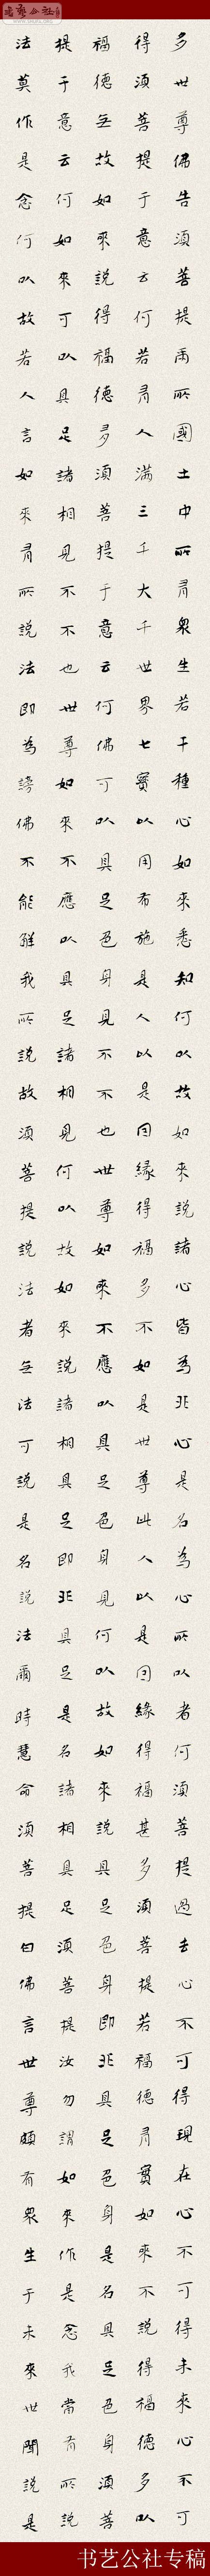 书艺公社
多世尊佛告須菩提爾所國土中所有衆生若干種心如來悉知何以故如來說諸心皆為非心是名為心所以者何須菩提過去心不可得現在心不可得未來心不可
得須菩提于意云何若有人滿三千大千世界七寶以用布施是人以是因緣得福多不如是世尊此人以是因緣得福甚多須菩提若福德有實如來不說得福德多以
福德无故如來說得福德多須菩提于意云何佛可以具足色身見不不也世尊如來不應以具足色身見何以故如來說具足色身即非具足色身是名具足色身須菩
提于意云何如來可以具足諸相見不不也世尊如來不應以具足諸相見何以故如來說諸相具足即非具足是名諸相具足須菩提汝勿謂如來作是念我當有所說
法莫作是念何以故若人言如來有所說法即為謗佛不能解我所說故須菩提說法者无法可說是名說法爾時慧命須菩提白佛言世尊頗有衆生于未來世聞說是
书艺公社专稿